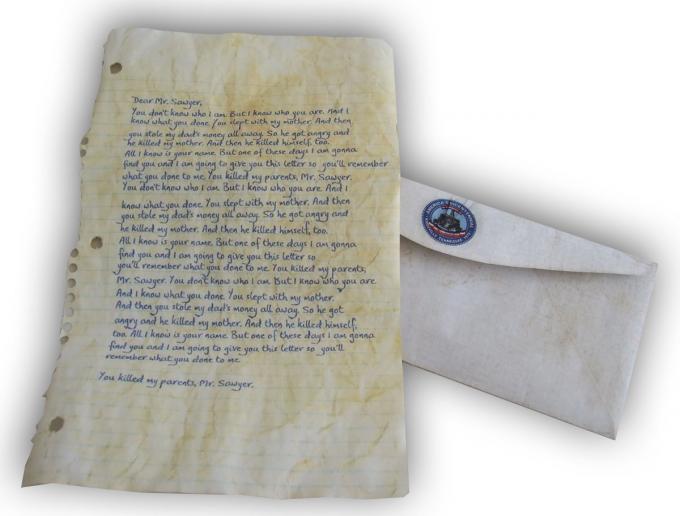 Dear Mr. Sawyer,
You don't know who I am. But I know who you are. And I
know what you done. You slept with my mother. And then
you stole my dad's money all away. So he got angry and
he killed my mother. And then he killed himself, too.
All I know is your name. But one of these days I am gonna
find you and I am going to give you this letter so you'll remember
what you done to me. You killed my parents, Mr. Sawyer.
You don't know who I am. But I know who you are. And I
know what you done. You slept with my mother. And then
you stole my dad's money all away. So he got angry and
he killed my mother. And then he killed himself, too.
All I know is your name. But one of these days I am gonna
find you and I am going to give you this letter so
you'll remember what you done to me. You killed my parents,
Mr. Sawyer. You don't know who I am. But I know who you are.
And I know what you done. You slept with my mother.
And then you stole my dad's money all away. So he got
angry and he killed my mother. And then he killed himself,
too. All I know is your name. But one of these days I am gonna
find you and I am going to give you this letter so you'll
remember what you done to me.
You killed my parents, Mr. Sawyer.
AMERICA'S BICENTENNIAL
TENNESSEE